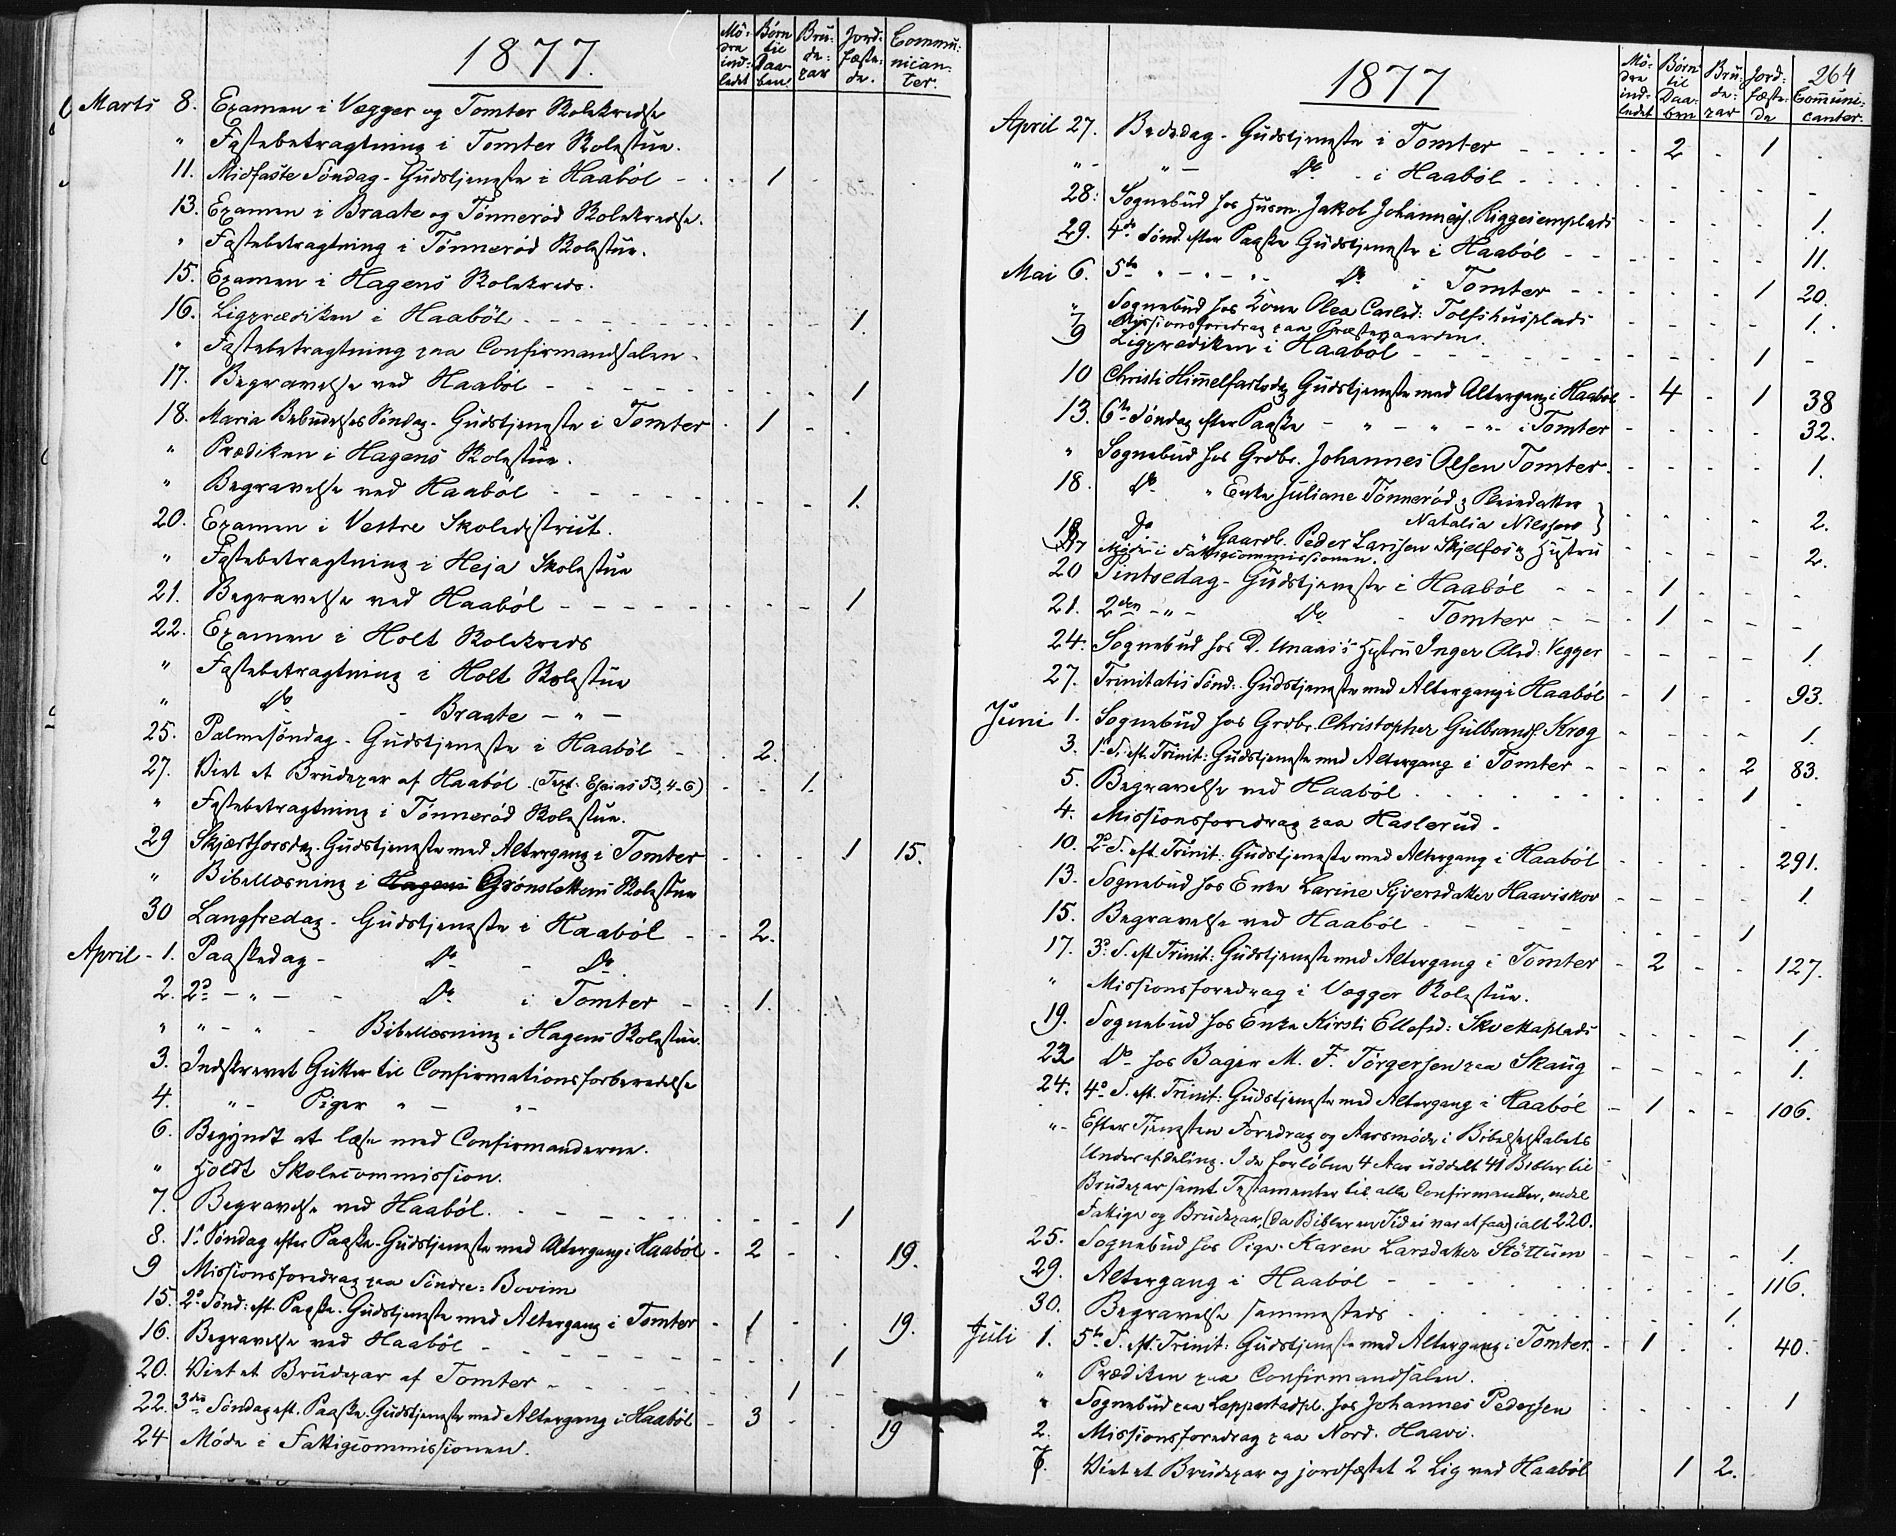 1877.
Mö-
dre
ind-
ledet
Børn
til
Daa-
ben
Bru-
de-
par
Jord-
fæste-
de.
Commu-
nican-
ter.
Marts 8. Examen i Vægger og Tomter Skolekredse
" Fastebetragtning i Tomter Skolestue.
11. Midfaste Søndag - Gudstjeneste i Haabøl - 1
13. Examen i Braate og Tønnerød Skolekredse.
" Fastebetragtning i Tønnerød Skolestue.
15. Examen i Hagens Skolekreds.
16. Ligprædiken i Haabøl - 1.
" Fastebetragtning paa Confirmandsalen.
17. Begravelse ved Haabøl - 1
18. Maria Bebudelses Søndag - Gudstjeneste i Tomter 1
" Prædiken i Hagens Skolestue.
" Begravelse ved Haabøl - 1.
20. Examen i Vestre Skoledistrict.
" Fastebetragtning i Heja Skolestue
21. Begravelse ved Haaböl - 1
22. Examen i Holt Skolekreds
" Fastebetragtning i Holt Skolestue
" Do - Braate - " -
25. Palmesöndag - Gudstjeneste i Haaböl - 2.
27. Viet et Brudepar af Haaböl. (Text. Esaias 53, 4-6) 1.
" Fastebetragtning i Tønnerød Skolestue.
29 Skjærthorsdag. Gudstjeneste med Altergang i Tomter 1 15.
" Bibellæsning i Hagens Grönslettens Skolestue
30 Langfredag - Gudstjeneste i Haaböl - 2.
April - 1. Paaskedag - Do - Do.
2. 2d - " - Do i Tomter - 1.
" " - " - Bibellæsning i Hagens Skolestue.
3. Indskrevet Gutter til Confirmationsforberedelse
4. " - Piger " - " -
6. Begyndt at læse med Confirmanderne.
" Holdt Skolecommission.
7. Begravelse ved Haaböl. - 1
8. 1ste Søndag efter Paaske - Gudstjeneste med Altergang i Haaböl - 2 - 19.
9 Missionsforedrag paa Söndre Bovim
15. 2d Sönd: eft. Paaske. Gudstjeneste med Altergang i Tomter - 1 19.
16. Begravelse ved Haaböl - 1
20. Viet et Brudepar af Tomter - 1
22. 3die Söndag eft. Paaske. Gudstjeneste med Altergang i Haaböl - 3 19
24 Möde i Fattigcommissionen.
1877
264
Mö-
dre
ind-
ledet
Børn
til
Daa-
ben
Bru-
de-
par
Jord-
fæste-
de
Communi-
canter.
April 27. Bededag - Gudstjeneste i Tomter - 2 - 1
" - " - Do - i Haaböl
28. Sognebud hos Husm. Jakob Johannes. Riggesemplads - 1.
29. 4de Sönd. efter Paaske Gudstjeneste i Haaböl - 11.
Mai 6. 5te " - " - " - Do i Tomter - 1 20.
" Sognebud hos Kone Olea Carlsd: Tolfshusplads - 1.
7 Missionsforedrag paa Præstegaarden.
9 Ligprædiken i Haaböl - 1 -
10 Christi Himmelfartsdag Gudstjeneste med Altergang i Haaböl - 4 - 1 38
13. 6te Söndag efter Paaske - " - " - " - i Tomter - 32.
" Sognebud hos Grdbr. Johannes Olsen Tomter. - 1.
18. Do " Enke Juliane Tönneröd & Pleiedatter
Natalia Nilssen } 2.
19 Do " Gaardb. Peder Larsen Skjelfos & Hustru - 2.
17 Möde i Fattigcommissionen.
20 Pintsedag - Gudstjeneste i Haaböl - 1
21. 2den - " - Do - Tomter - 1
24. Sognebud hos D. Unaas's Hustru Inger Olsd: Vegger - 1.
27. Trinitatis Sönd: Gudstjeneste med Altergang i Haaböl - 1 - 93.
Juni 1. Sognebud hos Grdbr. Christopher Gulbrands. Krog - 1.
3. 1. S. eft. Trinit: Gudstjeneste med Altergang i Tomter - 2 83.
5. Begravelse ved Haaböl - 1
4. Missionsforedrag paa Haslerud.
10. 2d S. eft. Trinit: Gudstjeneste med Altergang i Haaböl - 291.
13. Sognebud hos Enke Larine Syversdatter Haaviskov - 1.
15. Begravelse ved Haaböl - 1
17. 3d S. eft Trinit: Gudstjeneste med Altergang i Tomter - 2 - - 127.
" Missionsforedrag i Vægger Skolestue.
19. Sognebud hos Enke Kirsti Ellefsd: Skvettaplads - 1.
22 Do hos Bager M. F. Torgersen paa Skaug - 1.
24. 4d S. eft. Trinit: Gudstjeneste med Altergang i Haaböl - 1 - - 106.
" - Efter Tjenesten Foredrag og Aarsmöde i Bibelselskabets
Underafdeling. I de forløbne 4 Aar uddelt 41 Bibler til
Brudepar samt Testamenter til alle Confirmander, endel
Fattige og Brudepar, (da Bibler en Tid ei var at faa) ialt 220.
25. Sognebud hos Pige Karen Larsdatter Stöttum - 1.
29. Altergang i Haaböl - 116.
30. Begravelse sammesteds - 1.
Juli 1. 5te S. eft. Trinit: Gudstjeneste med Altergang i Tomter. - 1 - 40.
" Prædiken paa Confirmandsalen.
" Sognebud paa Leppestadpl. hos Johannes Pedersen - 1
2. Missionsforedrag paa Nord. Haavi.
7. Viet et Brudepar og jordfæstet 2 Lig ved Haaböl 1 2.